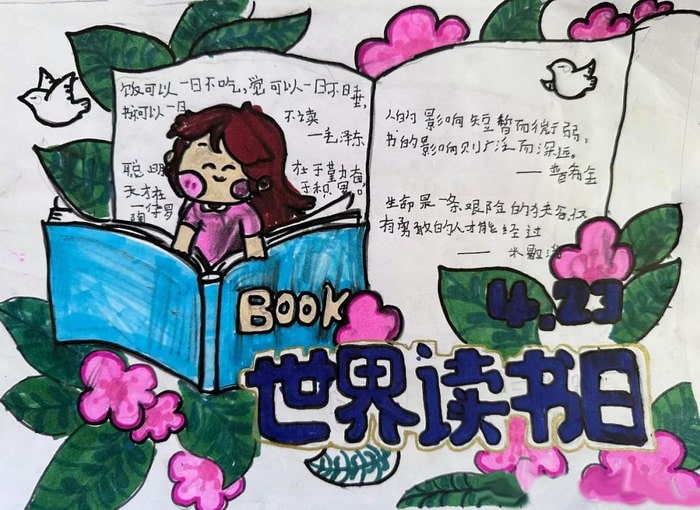 饭可以一日不吃，觉可以一日不睡，
书可以一日 不读
—毛泽东
聪明 在于勤奋
天才在 于积累。
人的影响短暂而微弱，
书的影响则广泛而深远。
——普希金
生命是一条艰险的狭谷，只
有勇敢的人才能经过
——米歇潘
BOOK
4.23
世界读书日